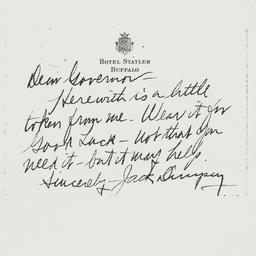 HOTEL STATLER
BUFFALO
Dear Governor —
Herewith is a little
token from me — Wear it for
Good Luck — Not that you
need it — but it may help.
Sincerely — Jack Dempsey